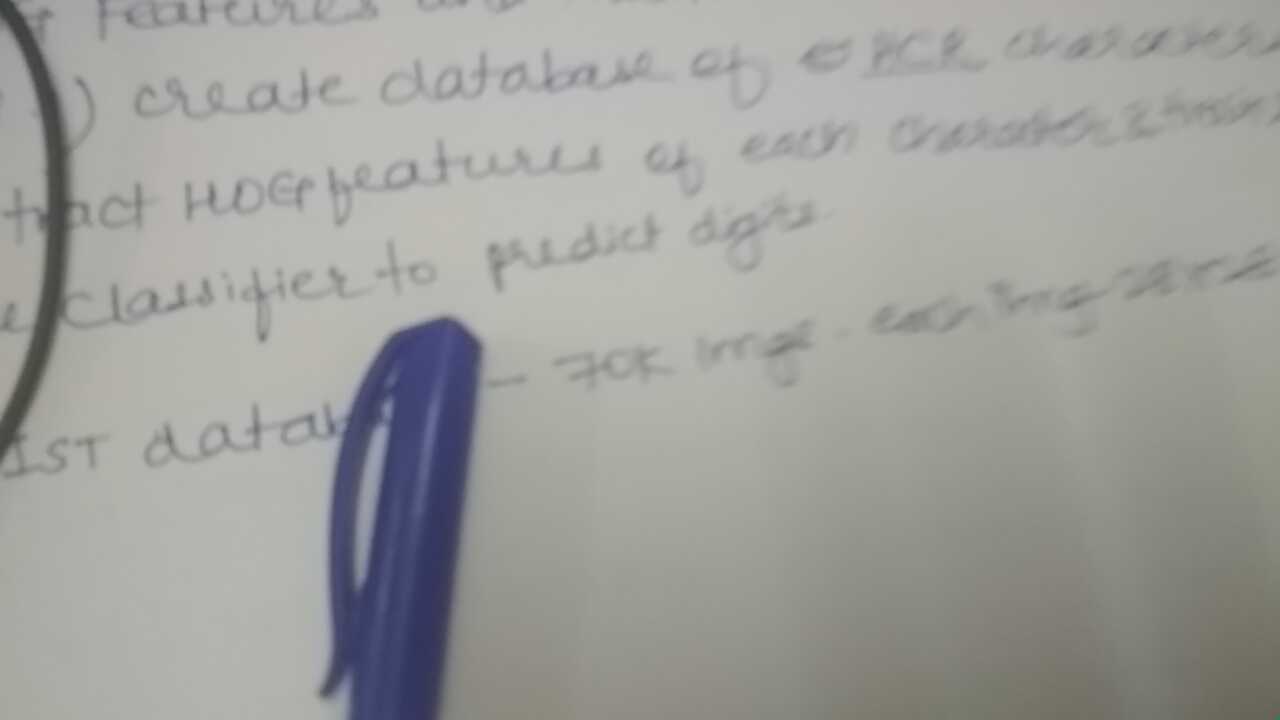 Features and
) create database of OCR characters
tract HOG features of each character & train
e classifier to predict digits.
IST datab – 70K imgs. each img